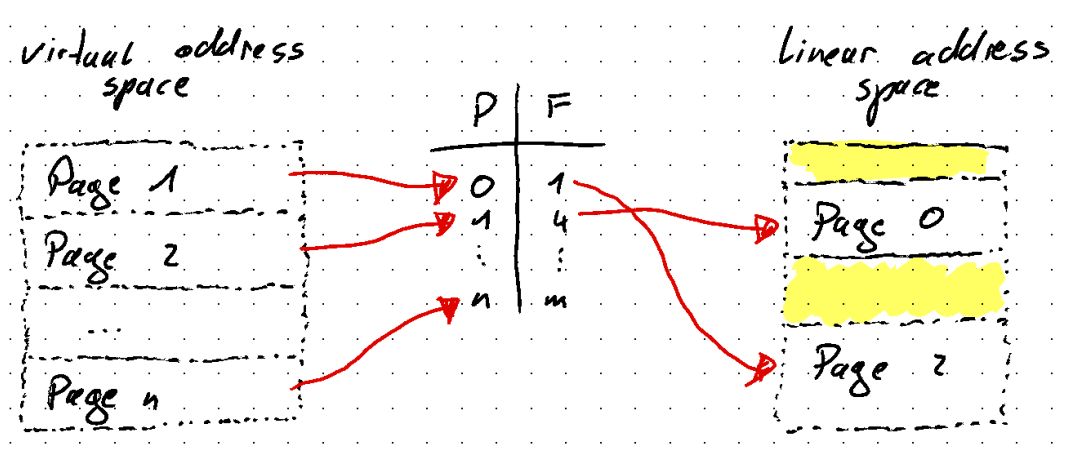 virtual address
space
Page 1
Page 2
...
Page n
P F
0 1
1 4
⋮ ⋮
n m
Linear address
space
Page 0
Page 2